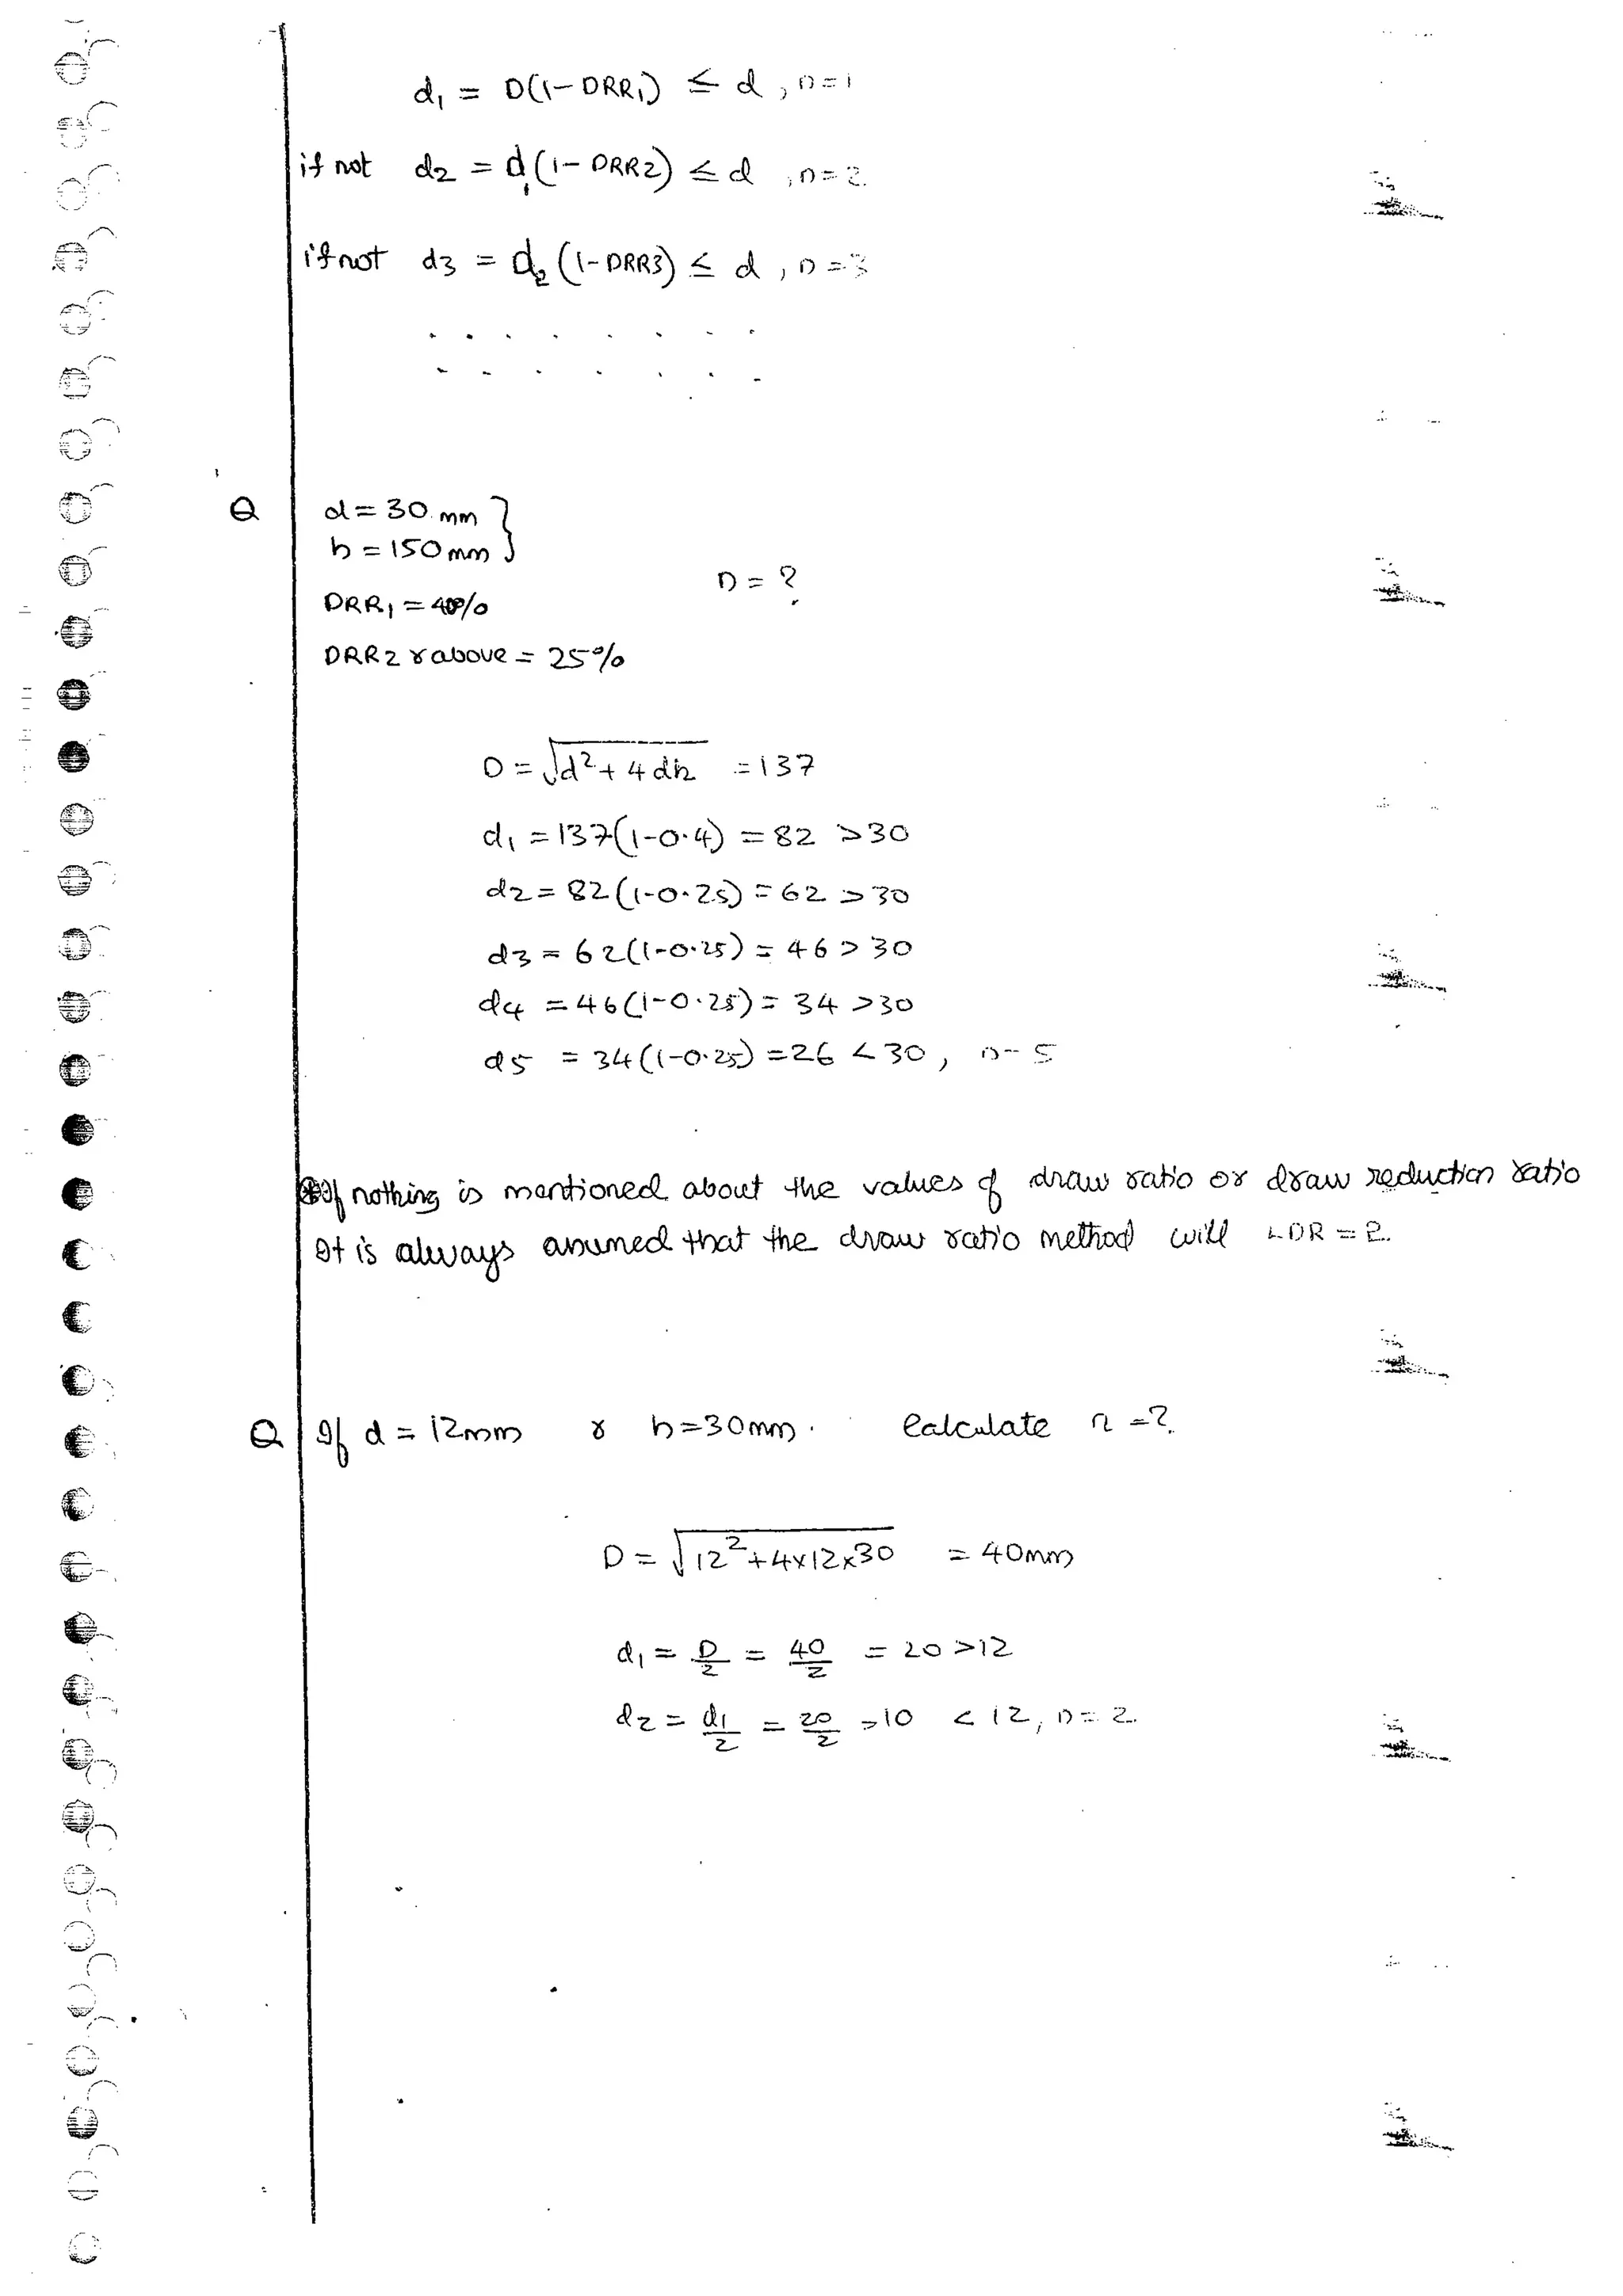 d₁ = D(1-DRR₁) ≤ d, n=1
if not d2 = d₁(1-DRR2) ≤ d, n=2
if not d3 = d₂(1-DRR3) ≤ d, n=3
Q d = 30 mm
h = 150mm }
n = ?
DRR₁ = 40%
DRR2 & above = 25%
D = √d²+4dh = 137
d₁ = 137(1-0.4) = 82 >30
d2 = 82(1-0.25) = 62 >30
d3 = 62(1-0.25) = 46 > 30
d4 = 46(1-0.25) = 34 >30
d5 = 34(1-0.25) = 26 < 30, n- 5
If nothing is mentioned about the values of draw ratio or draw reduction ratio
It is always assumed that the draw ratio method will LDR = 2.
Q If d = 12mm & h=30mm. Calculate n =?
D = √12²+4x12x30 = 40mm
d₁ = D/2 = 40/2 = 20 >12
d2 = d1/2 = 20/2 =10 < 12, n = 2.